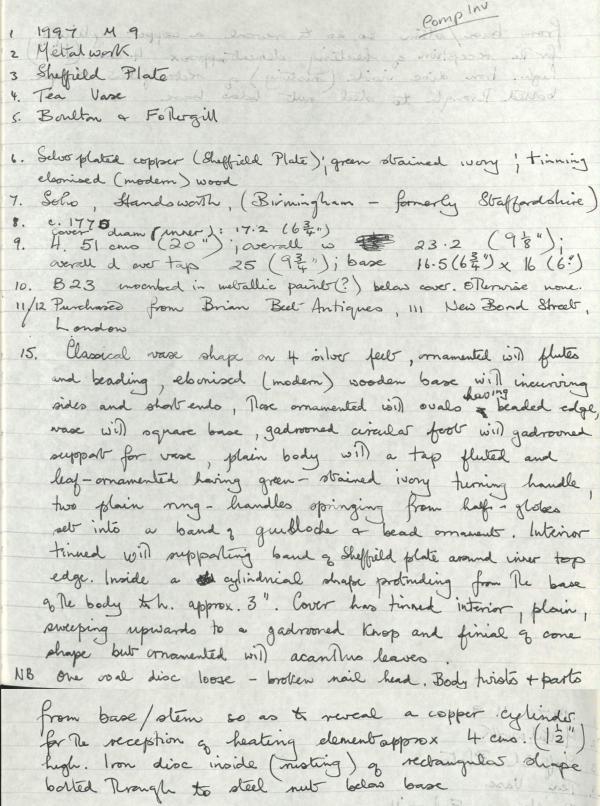 Comp Inv
1 1997 M 9
2 Metalwork
3 Sheffield Plate
4. Tea Vase
5. Boulton & Fothergill
6. Silver plated copper (Sheffield Plate); green stained ivory; tinning
ebonised (modern) wood
7. Soho, Handsworth, (Birmingham - formerly Staffordshire)
8. c. 1775
cover diam (inner): 17.2 (6 3/4")
9. H. 51 cms (20"); overall w 23.2 (9 1/8");
overall d over tap 25 (9 3/4"); base 16.5 (6 3/4") x 16 (6?)
10. B23 inscribed in metallic paint(?) below cover. Otherwise none.
11/12 Purchased from Brian Beet Antiques, 111 New Bond Street,
London
15. Classical vase shape on 4 silver feet, ornamented with flutes
and beading, ebonised (modern) wooden base with incurving
sides and short ends, these ornamented with ovals having beaded edge,
vase with square base, gadrooned circular foot with gadrooned
support for vase, plain body with a tap fluted and
leaf-ornamented having green-stained ivory turning handle,
two plain ring-handles springing from half-globes
set into a band of guilloche & bead ornament. Interior
tinned with supporting band of Sheffield plate around inner top
edge. Inside a cylindrical shape protruding from the base
of the body to h. approx. 3". Cover has tinned interior, plain,
sweeping upwards to a gadrooned knop and finial of cone
shape but ornamented with acanthus leaves.
NB One oval disc loose - broken nail head. Body twists & parts
from base/stem so as to reveal a copper cylinder
for the reception of heating element approx 4 cms. (1 1/2")
high. Iron disc inside (rusting) of rectangular shape
bolted through to steel nut below base